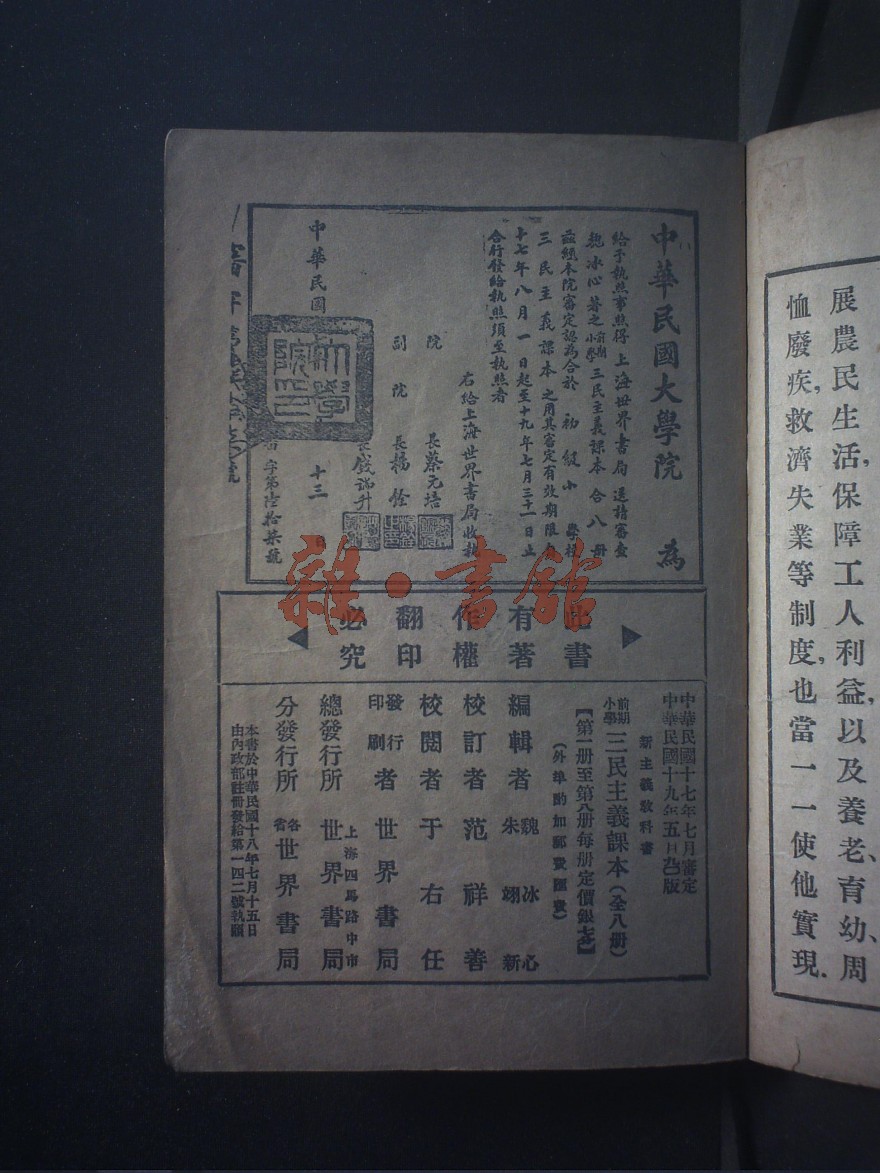 展農民生活,保障工人利益,以及養老、育幼、周
恤廢疾,救濟失業等制度,也當一一使他實現.
中華民國大學院 為
給予執照事照得 上海世界書局 送請審查
魏冰心著之 前期小學 三民主義課本 合八册
茲經本院審定認為合於 初級小 學校
三民主義課本 之用其審定有效期限
十七年八月一日起至十九年七月三十一日止
合行發給執照須至執照者
右給上海世界書局收執
院 長蔡元培
副院 長楊銓
長錢端升
中華民國 十三 日
字第陸拾柒號
大學院印
此書
有著
作權
翻印
必究
中華民國十七年七月審定
中華民國十九年五月 版
新主義教科書
前期小學 三民主義課本(全八册)
【第一册至第八册每册定價銀 】
(外埠酌加郵費匯費)
編輯者 魏冰心 朱翊新
校訂者 范祥善
校閱者 于右任
發行印刷者 世界書局
總發行所 上海四馬路中市 世界書局
分發行所 各省 世界書局
本書於中華民國十八年七月十五日
由內政部註冊發給第一四二號執照
雜·書館